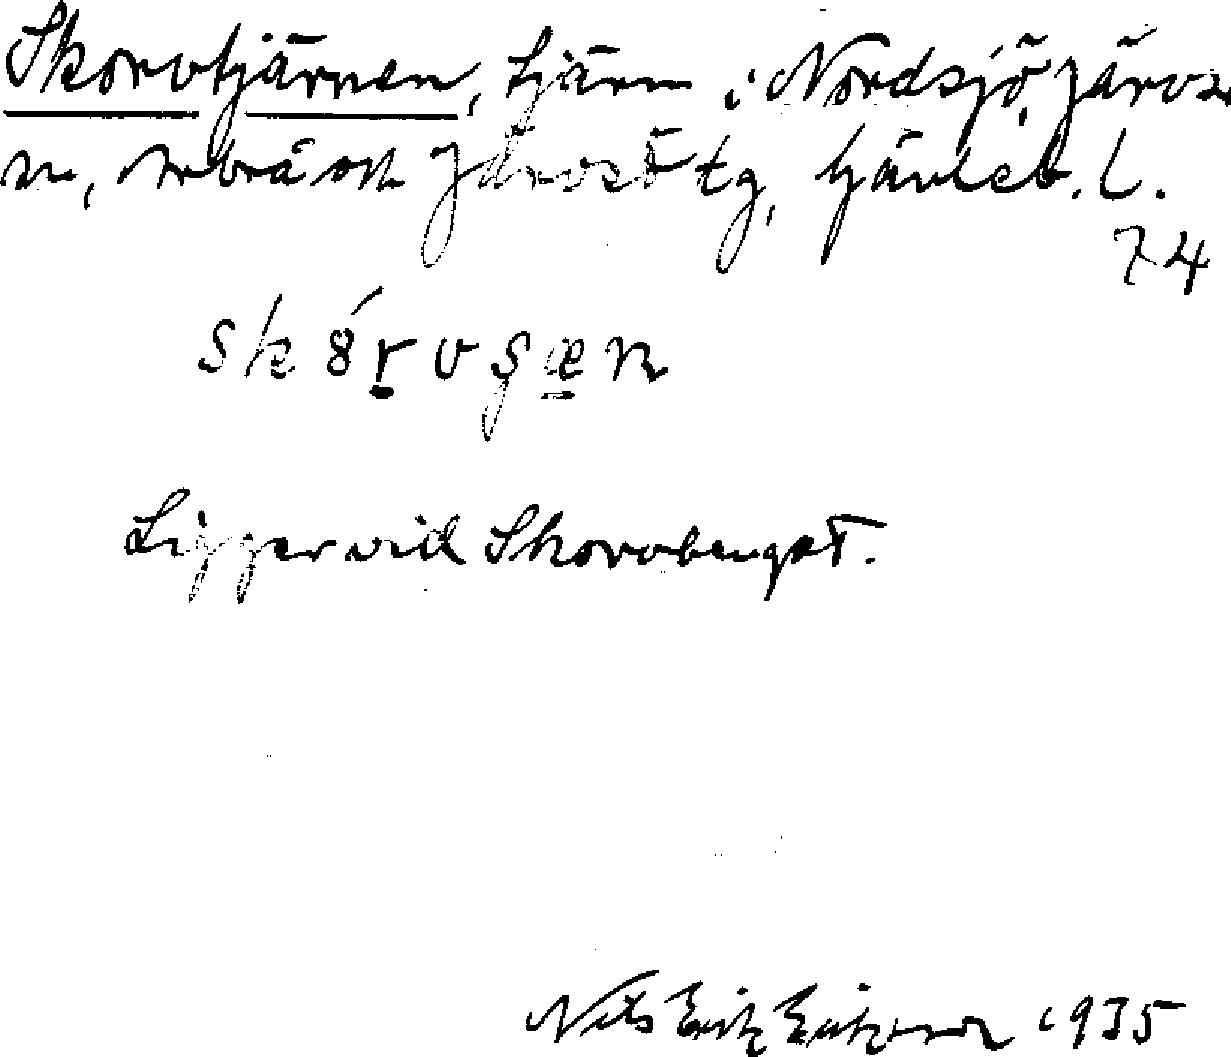 Skorvtjärnen, tjärn i Nordsjö, Järvsö
sn, Arbrå och Järvsö tg, Gävleb. l.
74
sk8́rvʂæn
Ligger vid Skorvberget.
Nils Erik Eriksson 1935